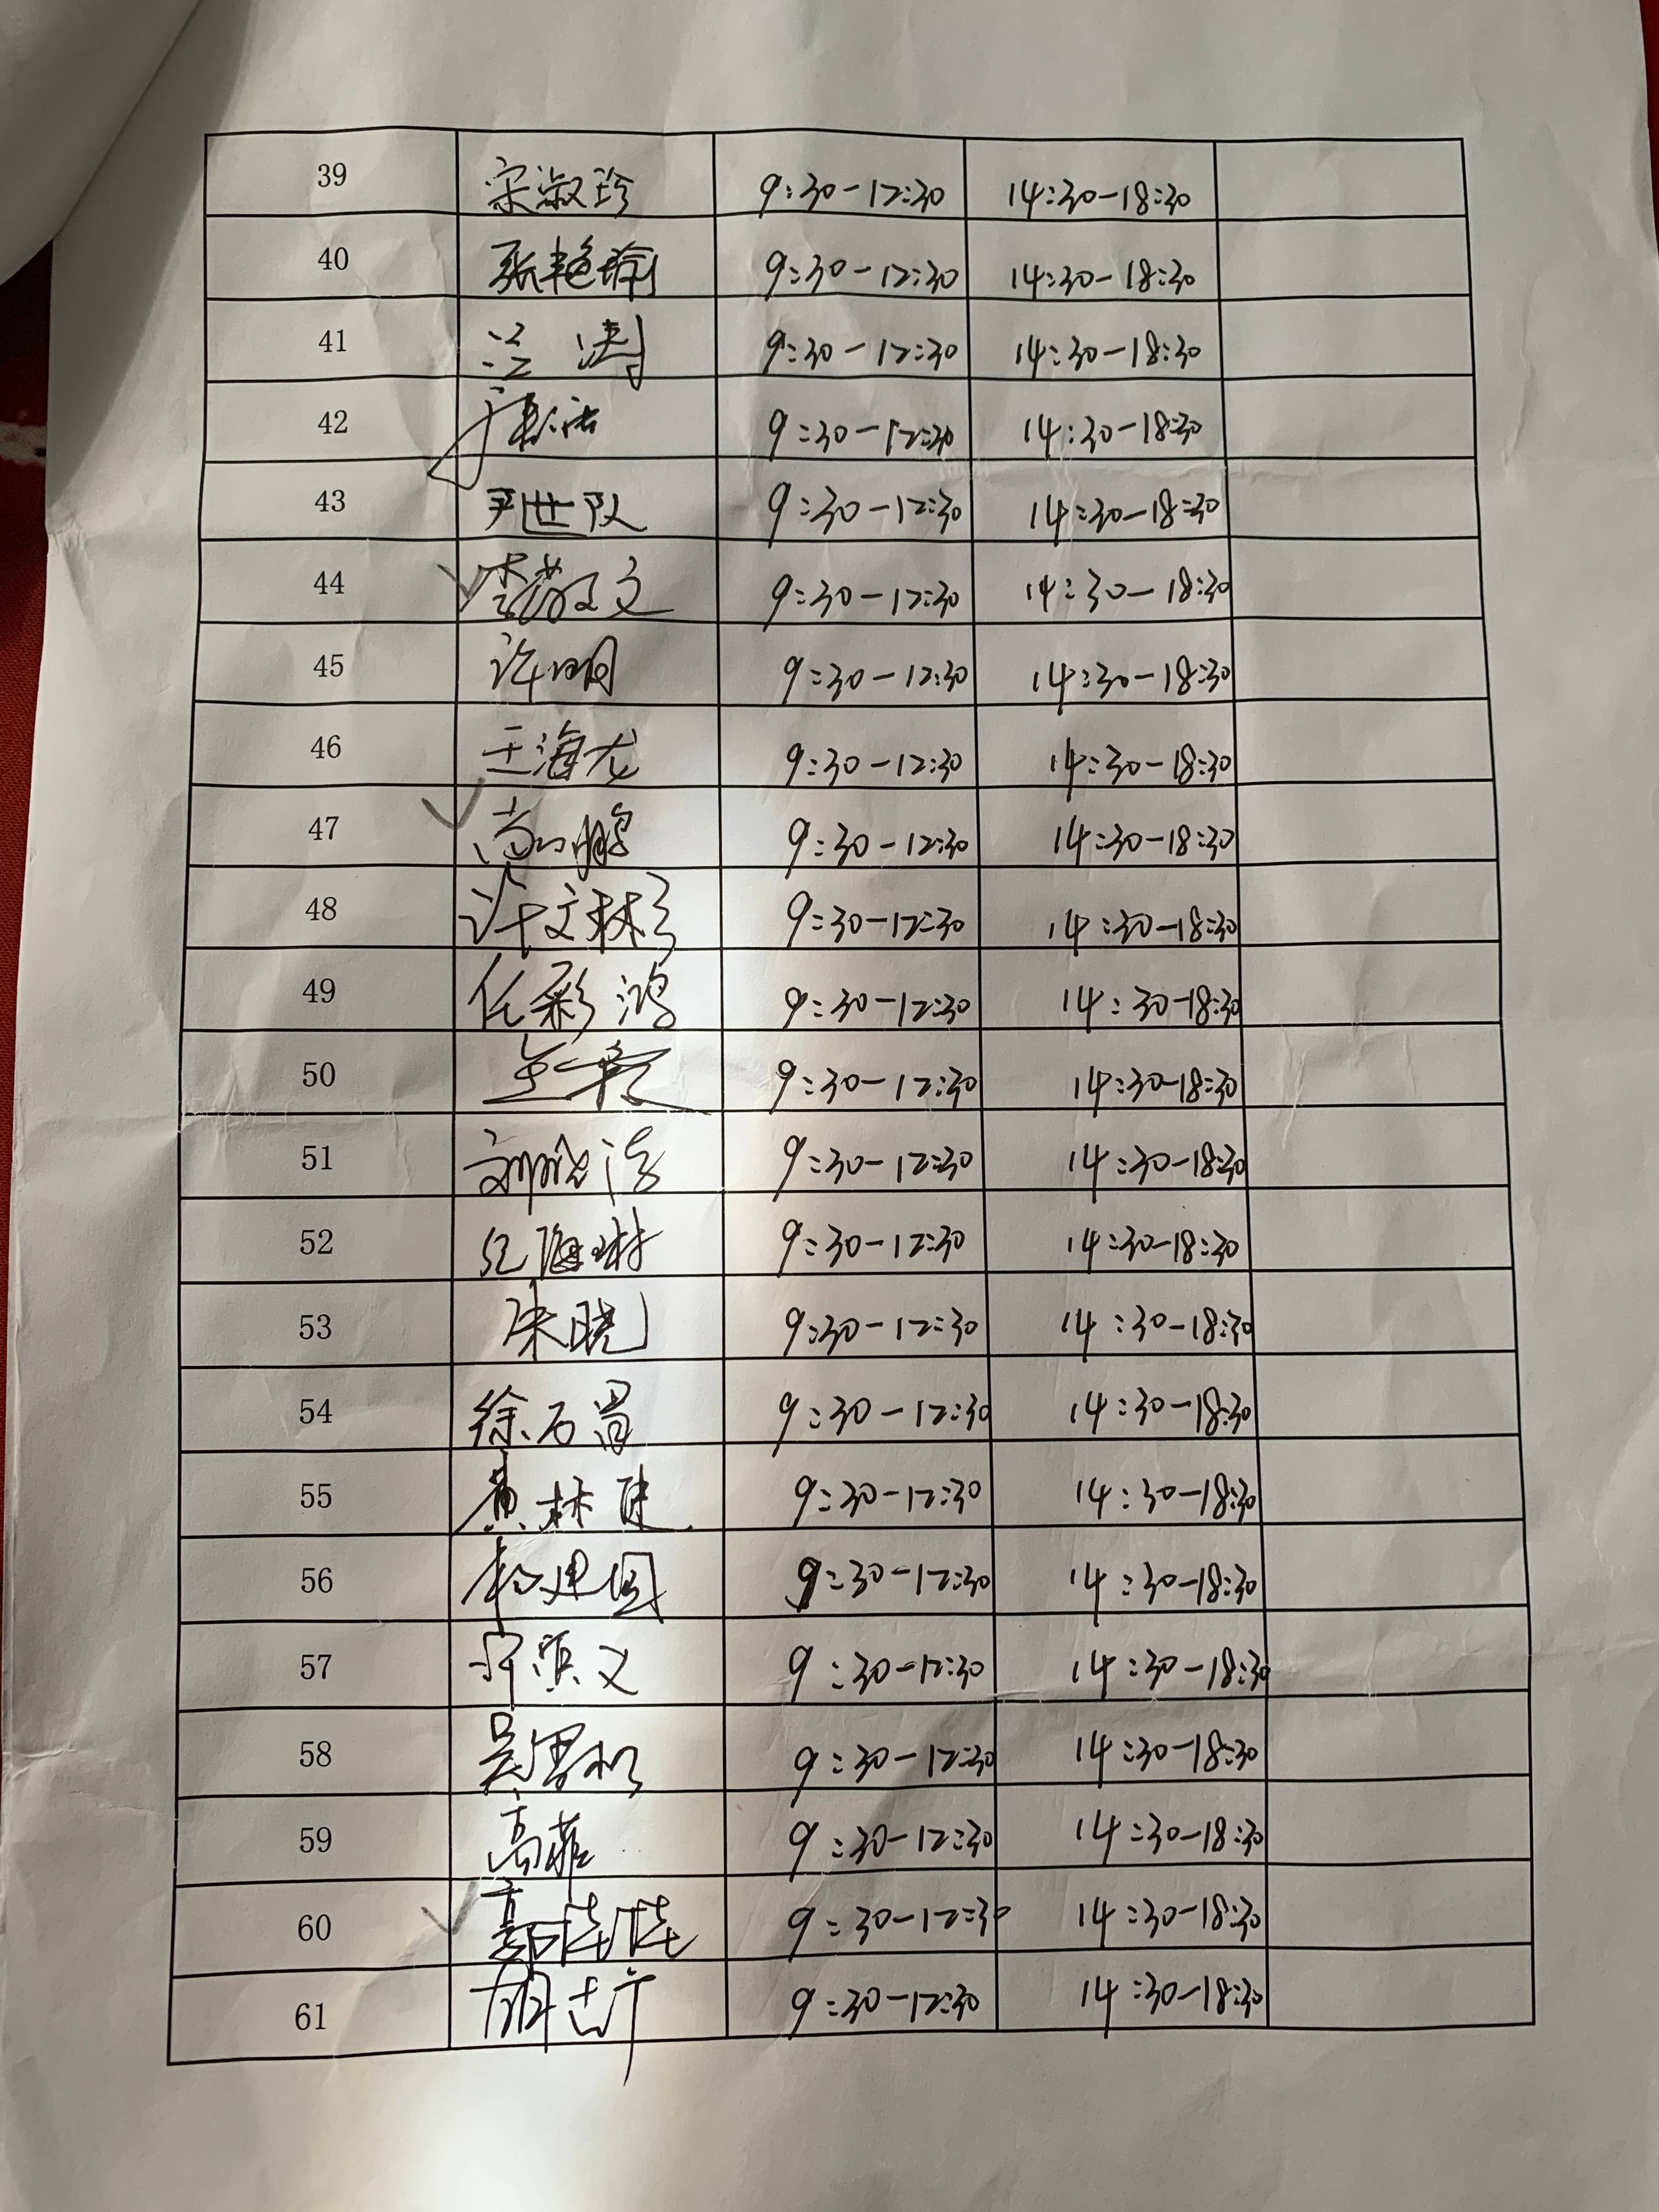 39 宋淑珍 9:30-12:30 14:30-18:30
40 张艳瑜 9:30-12:30 14:30-18:30
41 江涛 9:30-12:30 14:30-18:30
42 9:30-12:30 14:30-18:30
43 尹世队 9:30-12:30 14:30-18:30
44 文 9:30-12:30 14:30-18:30
45 许明 9:30-12:30 14:30-18:30
46 王海龙 9:30-12:30 14:30-18:30
47 鹏 9:30-12:30 14:30-18:30
48 许文彬 9:30-12:30 14:30-18:30
49 任彩鸿 9:30-12:30 14:30-18:30
50 9:30-12:30 14:30-18:30
51 刘 9:30-12:30 14:30-18:30
52 纪海琳 9:30-12:30 14:30-18:30
53 朱晓 9:30-12:30 14:30-18:30
54 徐石 9:30-12:30 14:30-18:30
55 黄林建 9:30-12:30 14:30-18:30
56 杨建国 9:30-12:30 14:30-18:30
57 9:30-12:30 14:30-18:30
58 吴 9:30-12:30 14:30-18:30
59 高菲 9:30-12:30 14:30-18:30
60 郭陆陆 9:30-12:30 14:30-18:30
61 胡志 9:30-12:30 14:30-18:30